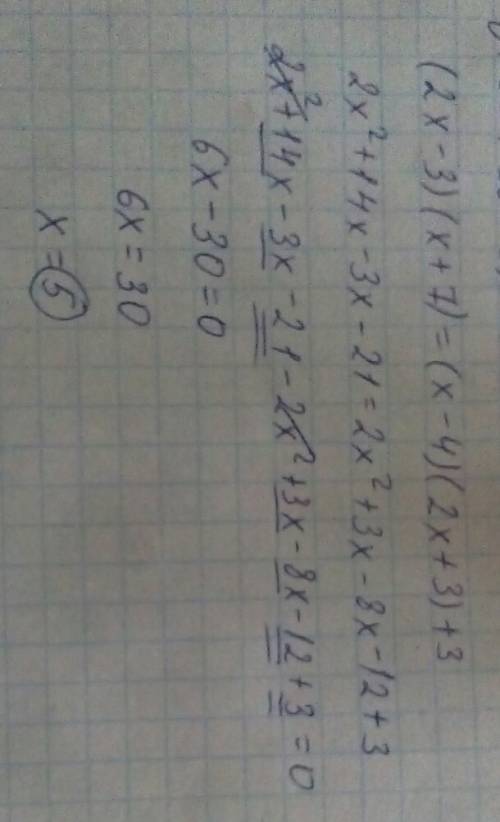 (2x-3)(x+7)=(x-4)(2x+3)+3
2x²+14x-3x-21=2x²+3x-8x-12+3
2x²+14x-3x-21-2x²+3x-8x-12+3=0
6x-30=0
6x=30
x=5